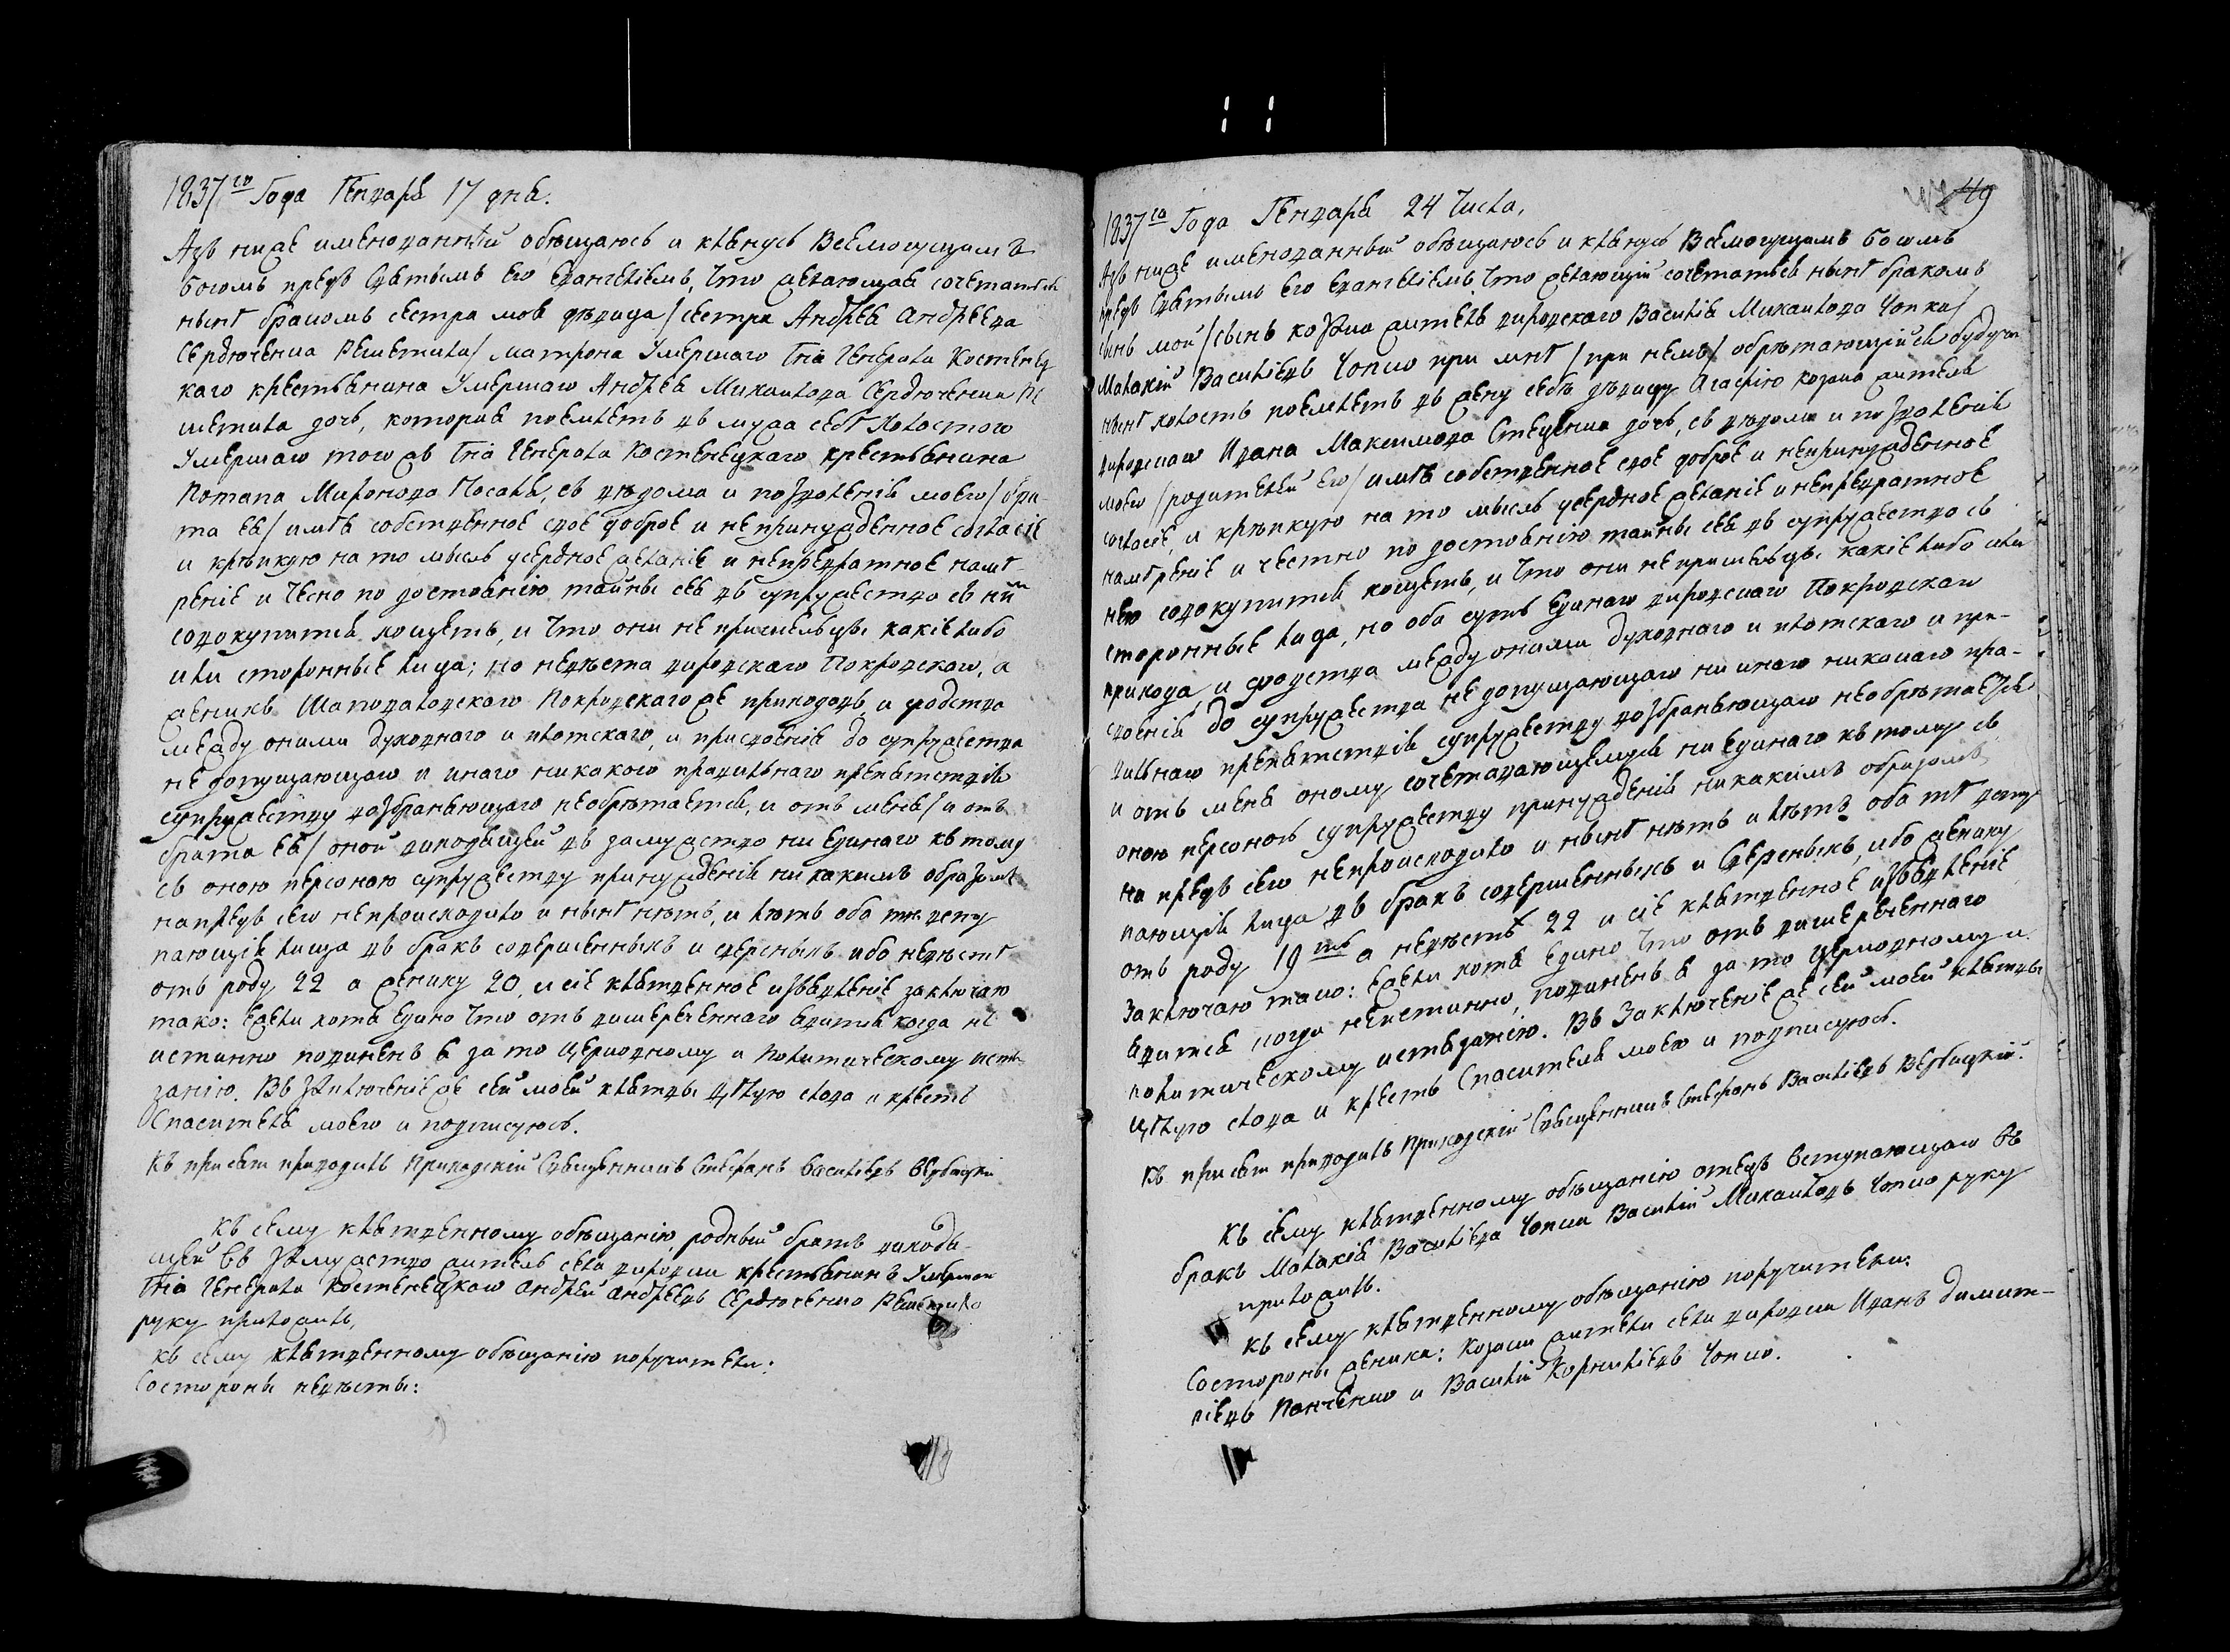 1837го Года Генваря 17 дня.
Азъ ниже именованный обѣщаюсь и клянусь Всемогущимъ
Богомъ предъ Святымъ его Евангеліемъ, что желающая сочетатися
нынѣ бракомъ сестра моя дѣвица / сестра Андрея Андреева
Сердюченка Решетила / Матрона Умершаго Гна Генерала Костенец
каго крестьянина Умершаго Андрея Михайлова Сердюченка Ре
шетила дочь, которая поемлетъ въ мужа себѣ холостого
Умершаго того жъ Гна Генерала Костенецкаго крестьянина
Потапа Миронова Носаля, съ вѣдома и позволенія моего / бра-
та ея / имѣя собственное свое доброе и непринужденное согласіе
и крѣпкую на то мысль усердное желаніе и непревратное намѣ-
реніе и чесно по достоянію тайны сея въ супружество съ ним
совокупится хощетъ, и что они не пришельцы какіе либо
или сторонные лица; но невѣста вировскаго Покровскаго, а
женихъ Шаповаловскаго Покровскаго же приходовъ и родства
между оними духовнаго и плотскаго, и присвоенія до супружества
не допущающаго и инаго никакого правильнаго препятствія
супружеству возбраняющаго необрѣтается, и отъ мене / и отъ
брата ея / оной виходящей въ замужство ни единаго къ тому
съ оною персоною супружеству принужденія никакимъ образомъ
напредъ сего непроисходило и нынѣ нѣтъ, и лѣтъ оба тѣ всту
пающіе лица въ бракъ совершенныхъ и сверсныхъ ибо невѣстѣ
отъ роду 22 а жениху 20, и сіе клятвенное извявленіе заключаю
тако: Ежели хотя едино что отъ вишереченнаго явится когда не
истинно повиненъ я за то церковному и политическому истя
занію. Въ заключеніе же сей моей клятвы цѣлую слова и крестъ
Спасителя моего и подписуюсь.
Къ присяги приводилъ приходскій Священникъ Стефанъ Васильевъ Вербицкій
Къ сему клятвенному обѣщанію, родный братъ виходя-
щей въ замужство житель села вировки крестьянинъ Умершаго
Гна Генерала Костенецкаго Андрей Андреевъ Сердюченко Решетило
руку приложилъ,
Къ сему клятвенному обѣщанію поручители:
Состороны невѣсты:
49
1837го Года Генваря 24 Числа,
Азъ ниже именованный обѣщаюсь и клянусь Всемогущимъ Богомъ
предъ Святымъ Его Евангеліемъ, что желающій сочетаться нынѣ бракомъ
сынъ мой / сынъ козака жителя вировскаго Василія Михайлова Чопка /
Малахій Васильевъ Чопко при мнѣ / при немъ / обрѣтающійся будучи
нынѣ холостъ поемлетъ въ жену себѣ дѣвицу Агафію козака жителя
вировскаго Ивана Максимова Стеценка дочь, съ вѣдома и позволенія
моего / родителей его / имѣя собственное свое доброе и непринужденное
согласіе, и крѣпкую на то мысль усердное желаніе и непревратное
намѣреніе и честно по достоянію тайны сея въ супружество съ
нею совокупится хощетъ, и что они не пришельцы какіе либо или
сторонные лица, но оба суть единаго вировскаго Покровскаго
прихода, и родства между оними духовнаго и плотскаго и при-
своенія до супружества не допущающаго ни инаго никакаго пра-
вильнаго препятствія супружеству возбраняющаго необрѣтаеться
и отъ мене оному сочетавающемуся ни единаго къ тому съ
оною персоною супружеству принужденія никакимъ образомъ
на предъ сего непроисходило и нынѣ нѣтъ и лѣтъ оба тѣ всту
пающія лица въ бракъ совершенныхъ и Сверсныхъ, ибо жениху
отъ роду 19ть а невѣстѣ 22 и сіе клятвенное извявленіе
Заключаю тако: Ежели хотя едино что отъ вишереченнаго
явится когда неистинно, повиненъ я за то церковному и
политическому истязанію. Въ Заключеніе же сей моей клятвы
цѣлую слова и крестъ Спасителя моего и подписуюсь.
Къ присяги приводилъ Приходскій Священникъ Стефанъ Васильевъ Вербицкій.
Къ сему клятвенному обѣщанію отецъ вступающаго въ
бракъ Малахія Васильева Чопка Василій Михайловъ Чопко руку
приложилъ.
Къ сему клятвенному обѣщанію поручители:
Состороны жениха: Козаки жители села вировки Иванъ Димит-
ріевъ Панченко и Василій Корниліевъ Чопко.